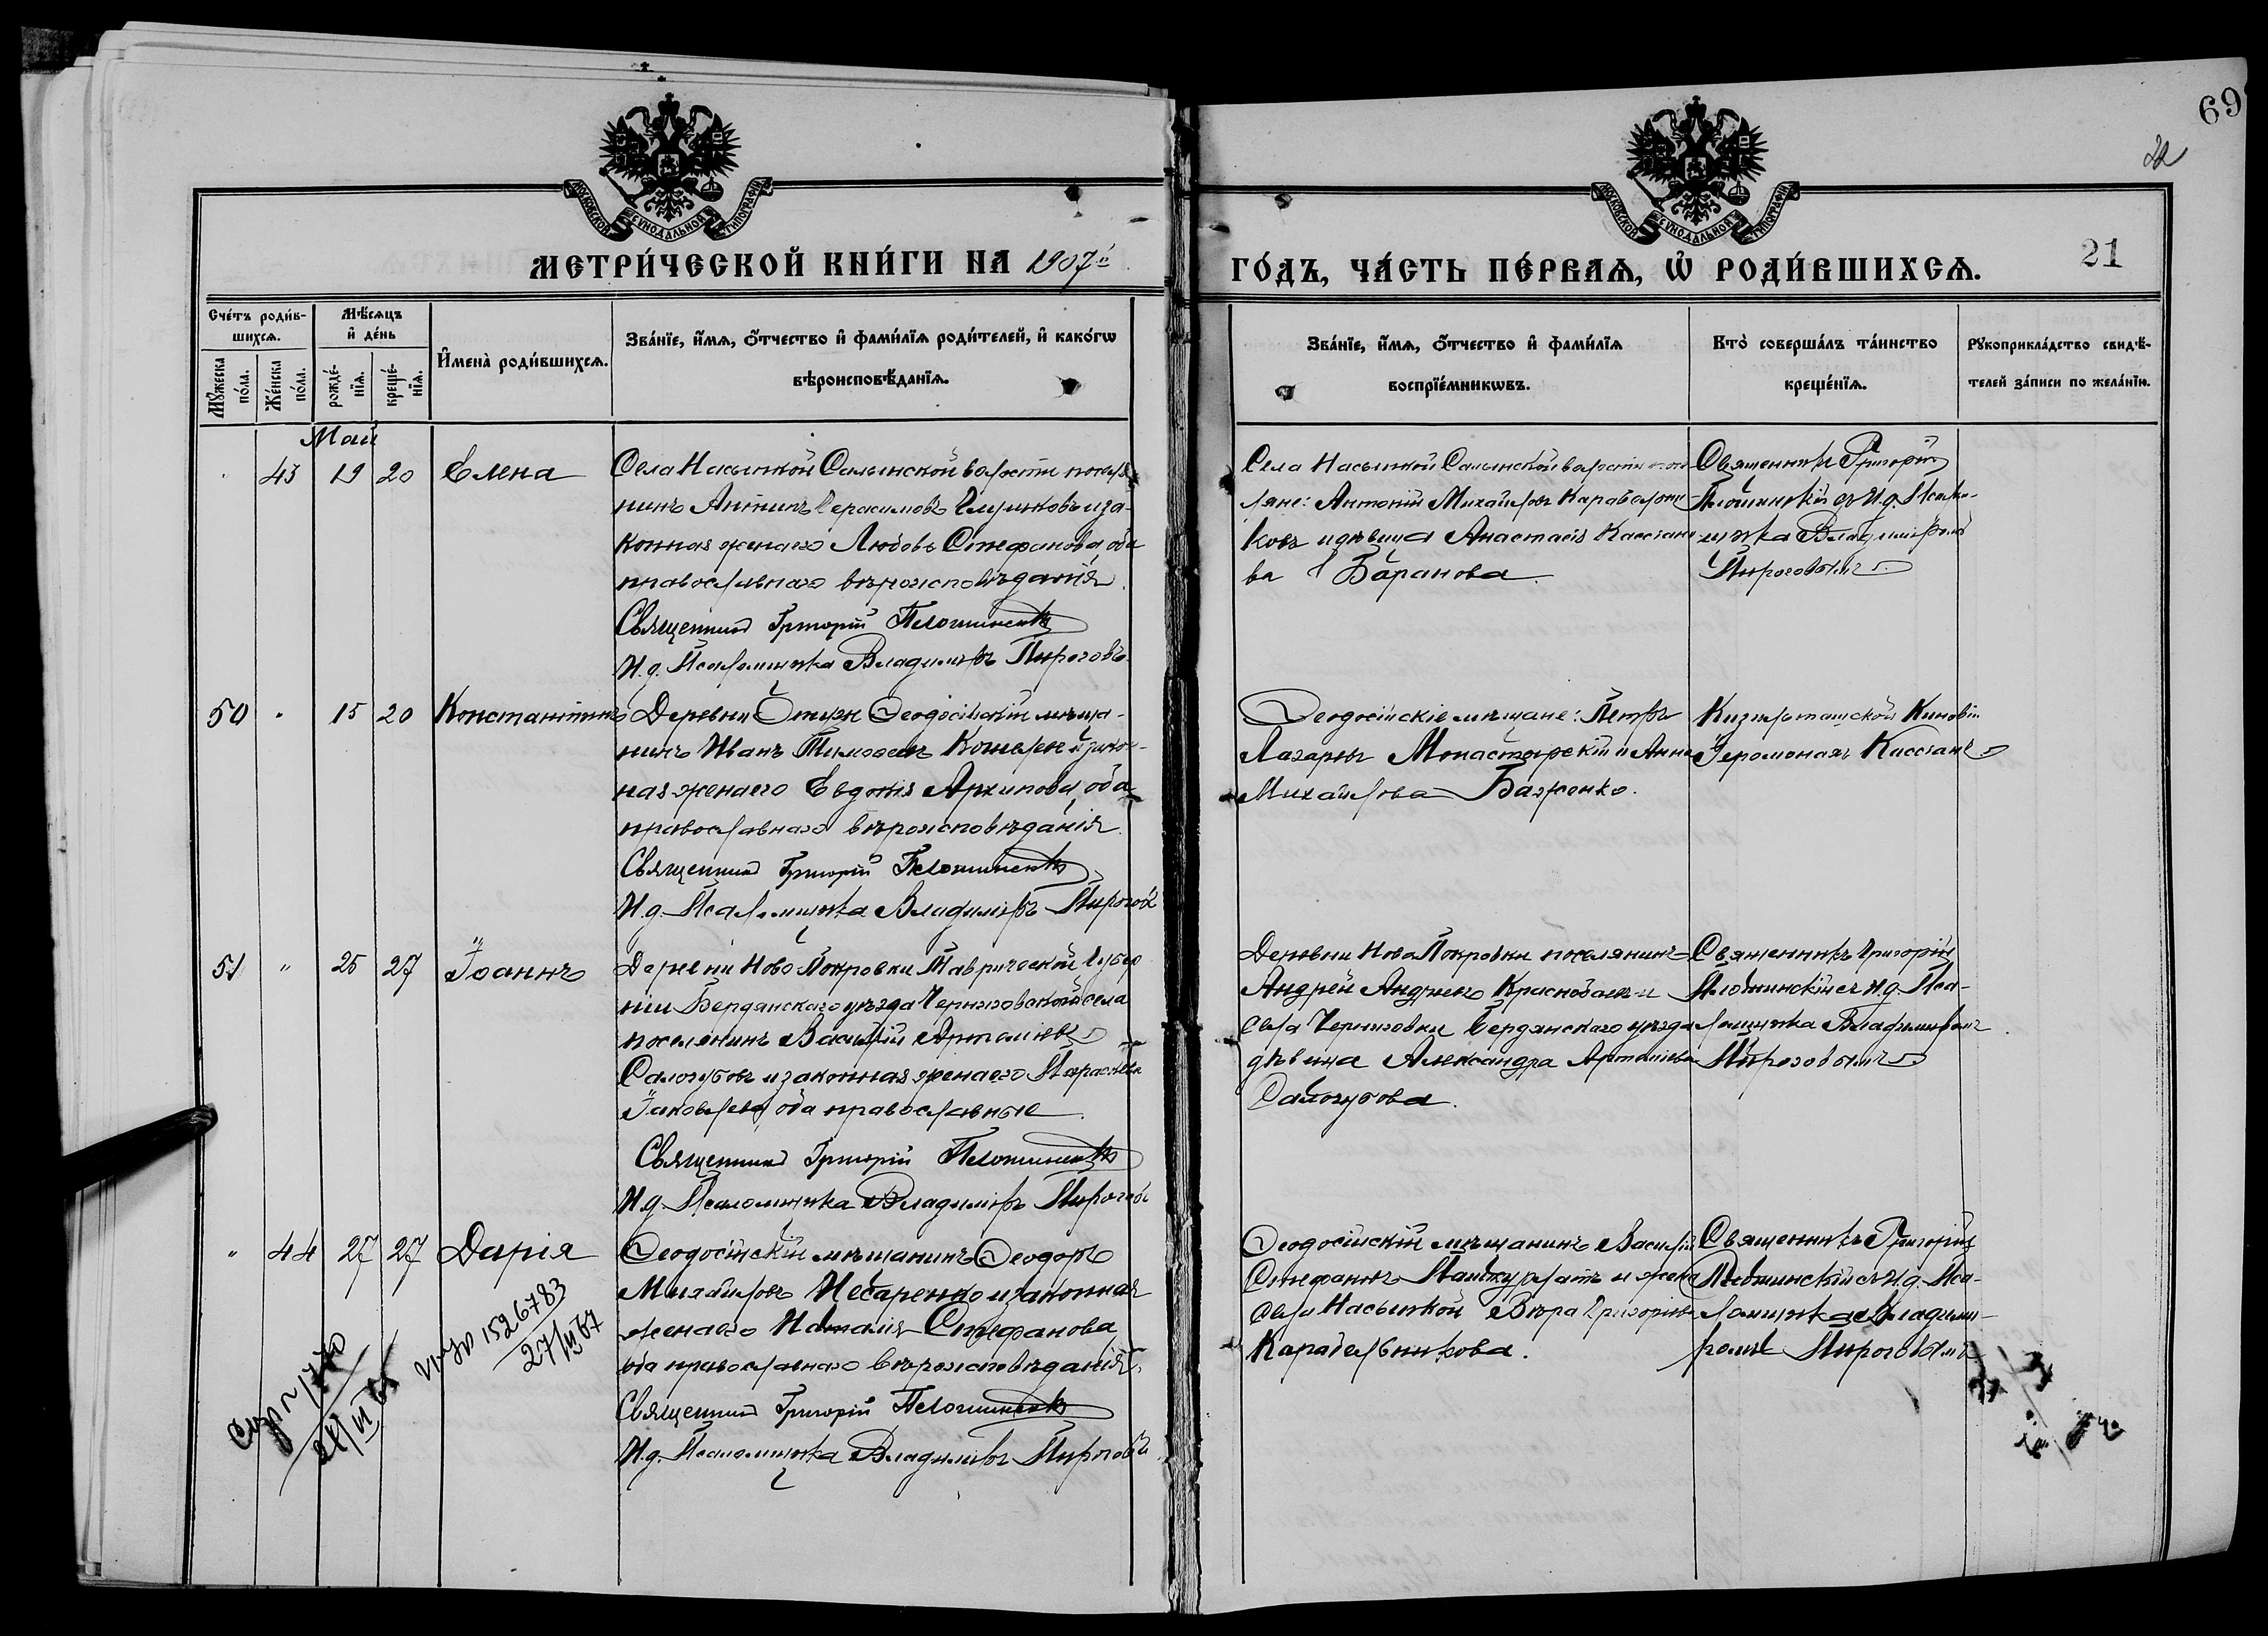 69
22
21
МОСКОВСКОЙ СѴНОДАЛЬНОЙ ТИПОГРАФІИ
МОСКОВСКОЙ СѴНОДАЛЬНОЙ ТИПОГРАФІИ
МЕТРИ́ЧЕСКОЙ КНИ́ГИ НА 1907й
ГО́ДЪ, ЧА́СТЬ ПЕ́РВАЯ, Ѡ҆ РОДИ́ВШИХСѦ.
Сче́тъ роди́в-
шихсѧ.
Мꙋ́жеска
по́ла.
Же́нска
по́ла.
Мѣ́сѧцъ
и҆ де́нь
рожде́-
нїѧ.
креще́-
нїѧ.
И҆мена̀ роди́вшихсѧ.
Зва́нїе, и҆́мѧ, ѻ҆́тчество и҆ фами́лїѧ роди́телей, и҆ како́гѡ
вѣроисповѣ́данїѧ.
Зва́нїе, и҆́мѧ, ѻ҆́тчество и҆ фами́лїѧ
воспрїе́мникѡвъ.
Кто̀ соверша́лъ та́инство
креще́нїѧ.
Рꙋкоприкла́дство свидѣ́-
телей за́писи по жела́нїю.
Май
43 19 20 Елена
Села Насыпкой Салынской волости поселя
нинъ Антипъ Герасимовъ и за-
конная жена его Любовь Стефанова оба
православнаго вѣроисповѣданія.
Священникъ Григорій Плошинскій
И.д. Псаломщика Владиміръ Пироговъ
Села Насыпкой Салынской волости посе
ляне: Антоній Михайловъ Карабельни-
ковъ и дѣвица Анастасія Кассіано
ва Баранова
Священникъ Григорій
Плошинскій съ И.д. Псало-
мщика Владиміромъ
Пироговымъ
50 " 15 20 Константинъ
Деревни Отузы Ѳеодосійскій мѣща-
нинъ Иванъ Тимоѳеевъ и закон-
ная жена его Евдокія Архипова, оба
православнаго вѣроисповѣданія.
Священникъ Григорій Плошинскій
И.д. Псаломщика Владиміръ Пироговъ
Ѳеодосійскіе мѣщане: Петръ
Лазаревъ Монастырскій и Анна
Михайлова Баженко.
Кизилташской Киновіи
Іеромонахъ Кассіанъ
51 " 25 27 Іоаннъ
Деревни Ново-Покровки Таврической Губер
ніи Бердянскаго уѣзда Черниговской села
поселянинъ Василій Артаміевъ
Салогубовъ и законная жена его Параскева
Іаковлева, оба православные
Священникъ Григорій Плошинскій
И.д. Псаломщика Владиміръ Пироговъ
Деревни Ново Покровки поселянинъ
Андрей Андреевъ и
села Черниговки Бердянскаго уѣзда
дѣвица Александра Артаміева
Салогубова.
Священникъ Григорій
Плошинскій съ И.д. Пса-
ломщика Владиміромъ
Пироговымъ
" 44 27 27 Дарія
Ѳеодосійскій мѣщанинъ Ѳеодоръ
Михайловъ Нечаренко и законная
жена его Наталія Стефанова
оба православнаго вѣроисповѣданія.
Священникъ Григорій Плошинскій
И.д. Псаломщика Владиміръ Пироговъ
Ѳеодосійскій мѣщанинъ Василій
Стефановъ и жена
села Насыпкой Вѣра Григорьева
Карабельникова.
Священникъ Григорій
Плошинскій съ И.д. Пса-
ломщика Владими-
ромъ Пироговымъ
1526783